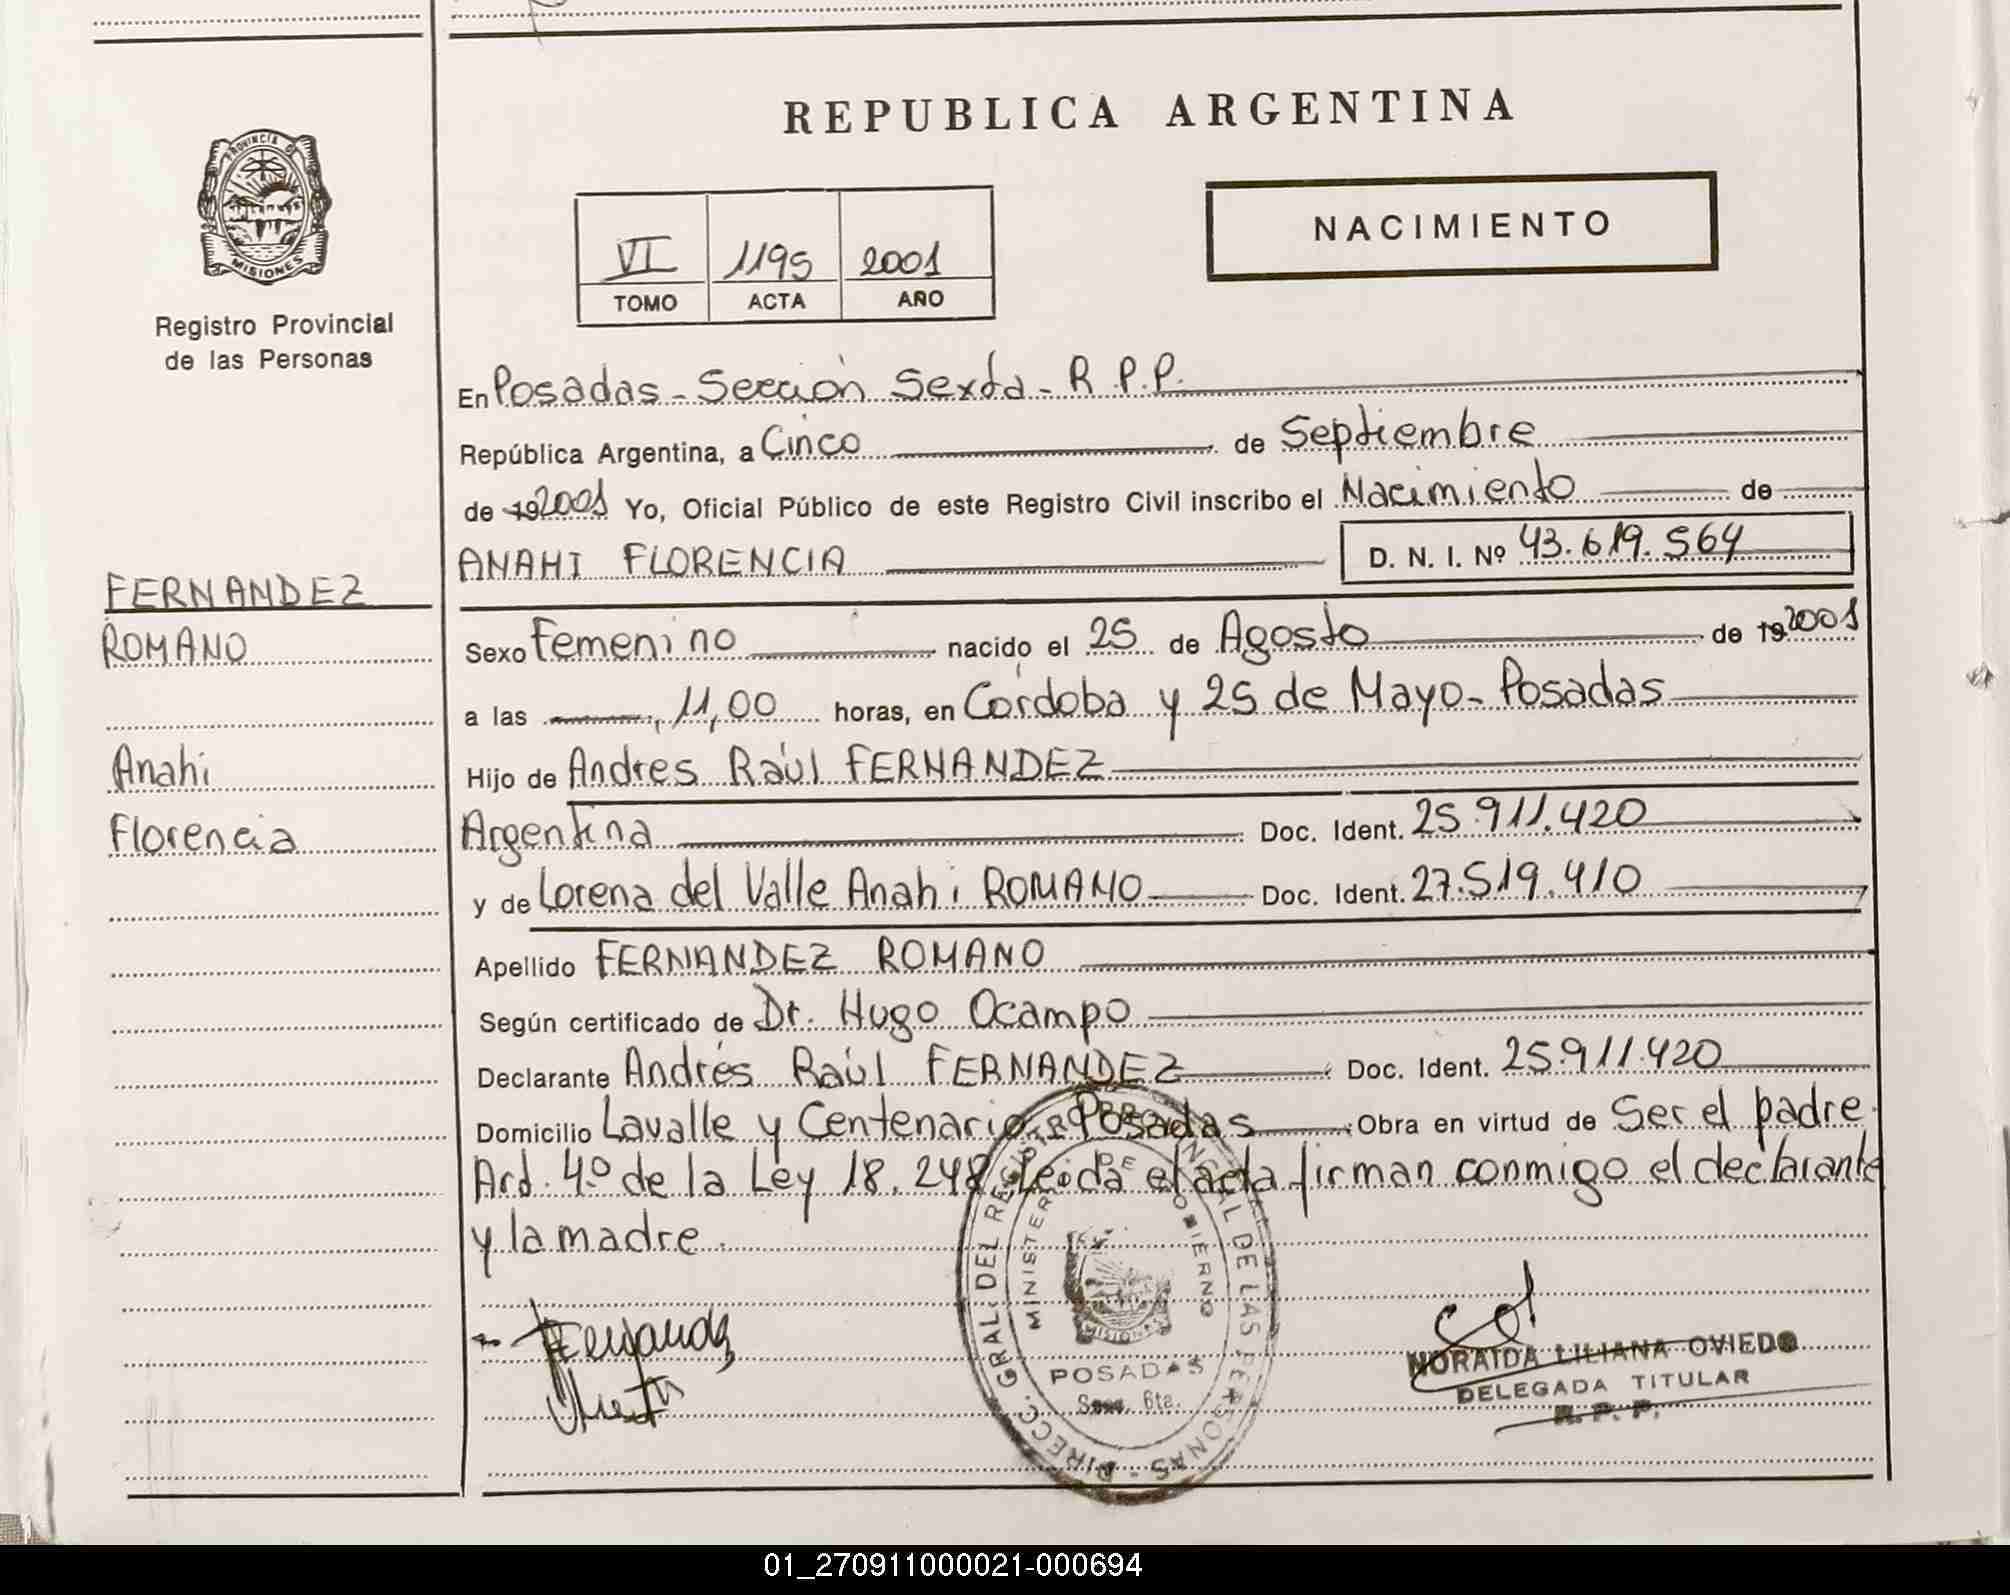 REPUBLICA ARGENTINA
PROVINCIA DE
MISIONES
Registro Provincial
de las Personas
NACIMIENTO
VI 1195 2001
TOMO ACTA AÑO
En Posadas - Sección Sexta - R.P.P.
República Argentina, a Cinco de Septiembre
de 19 2001 Yo, Oficial Público de este Registro Civil inscribo el Nacimiento de
ANAHI FLORENCIA D. N. I. Nº 43.619.564
FERNANDEZ
ROMANO
Anahi
Florencia
Sexo Femenino nacido el 25 de Agosto de 19 2001
a las 11,00 horas, en Córdoba y 25 de Mayo - Posadas
Hijo de Andres Raúl FERNANDEZ
Argentina Doc. Ident. 25.911.420
y de Lorena del Valle Anahi ROMANO Doc. Ident. 27.519.410
Apellido FERNANDEZ ROMANO
Según certificado de Dr. Hugo Ocampo
Declarante Andrés Raúl FERNANDEZ Doc. Ident. 25.911.420
Domicilio Lavalle y Centenario - Posadas Obra en virtud de Ser el padre.
Art. 4º de la Ley 18.248 Leída el acta firman conmigo el declarante
y la madre.
DIRECC. GRAL. DEL REGISTRO PROVINCIAL DE LAS PERSONAS
MINISTERIO DE GOBIERNO
MISIONES
POSADAS
Secc. 6ta.
NORAIDA LILIANA OVIEDO
DELEGADA TITULAR
R. P. P.
01_270911000021-000694